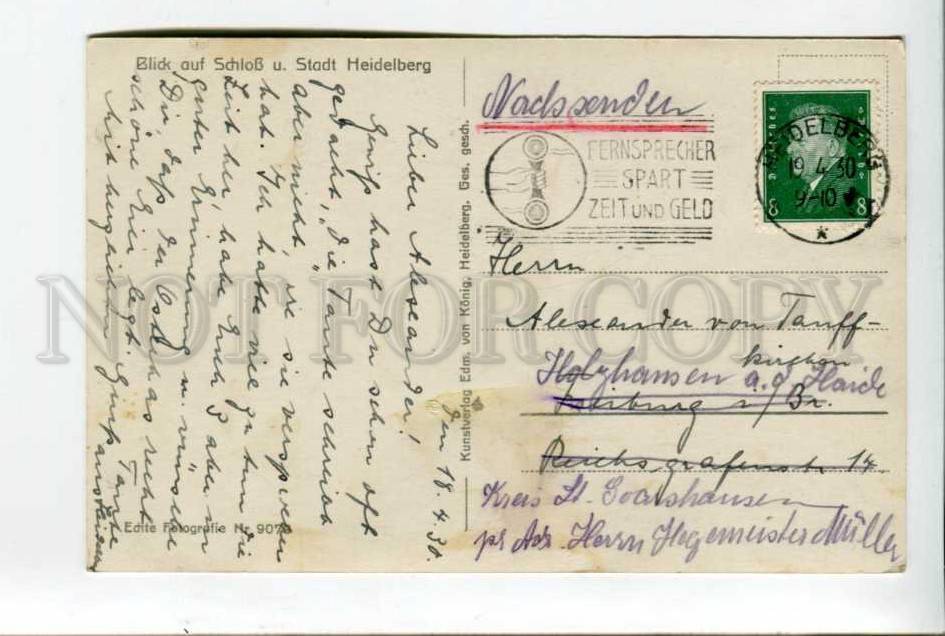 Blick auf Schloß u. Stadt Heidelberg
Den 18.4.30.
Lieber Alexander!
Gewiß hast Du schon oft
gedacht, „die Tante schreibt
aber nicht, wie sie versprochen
hat. Ich hatte viel zu tun die
Zeit her, habe Euch aber in
guter Erinnerung u. wünsche
Dir, daß der Osterhas recht
schöne Eier legt.
Mit herzlichem Gruß Tante
Echte Fotografie Nr. 907
Kunstverlag Edm. von König, Heidelberg. Ges. gesch.
Nachsenden
FERNSPRECHER
SPART
ZEIT UND GELD
HEIDELBERG
19.4.30
9-10
8 8
Herrn
Alexander von Tauff-
kirchen
Holzhausen a.d. Haide
Freiburg i/Br.
Reichsgrafenstr 14.
Kreis St. Goarshausen
pr Adr. Herrn Hegemeister Müller
NOT FOR COPY